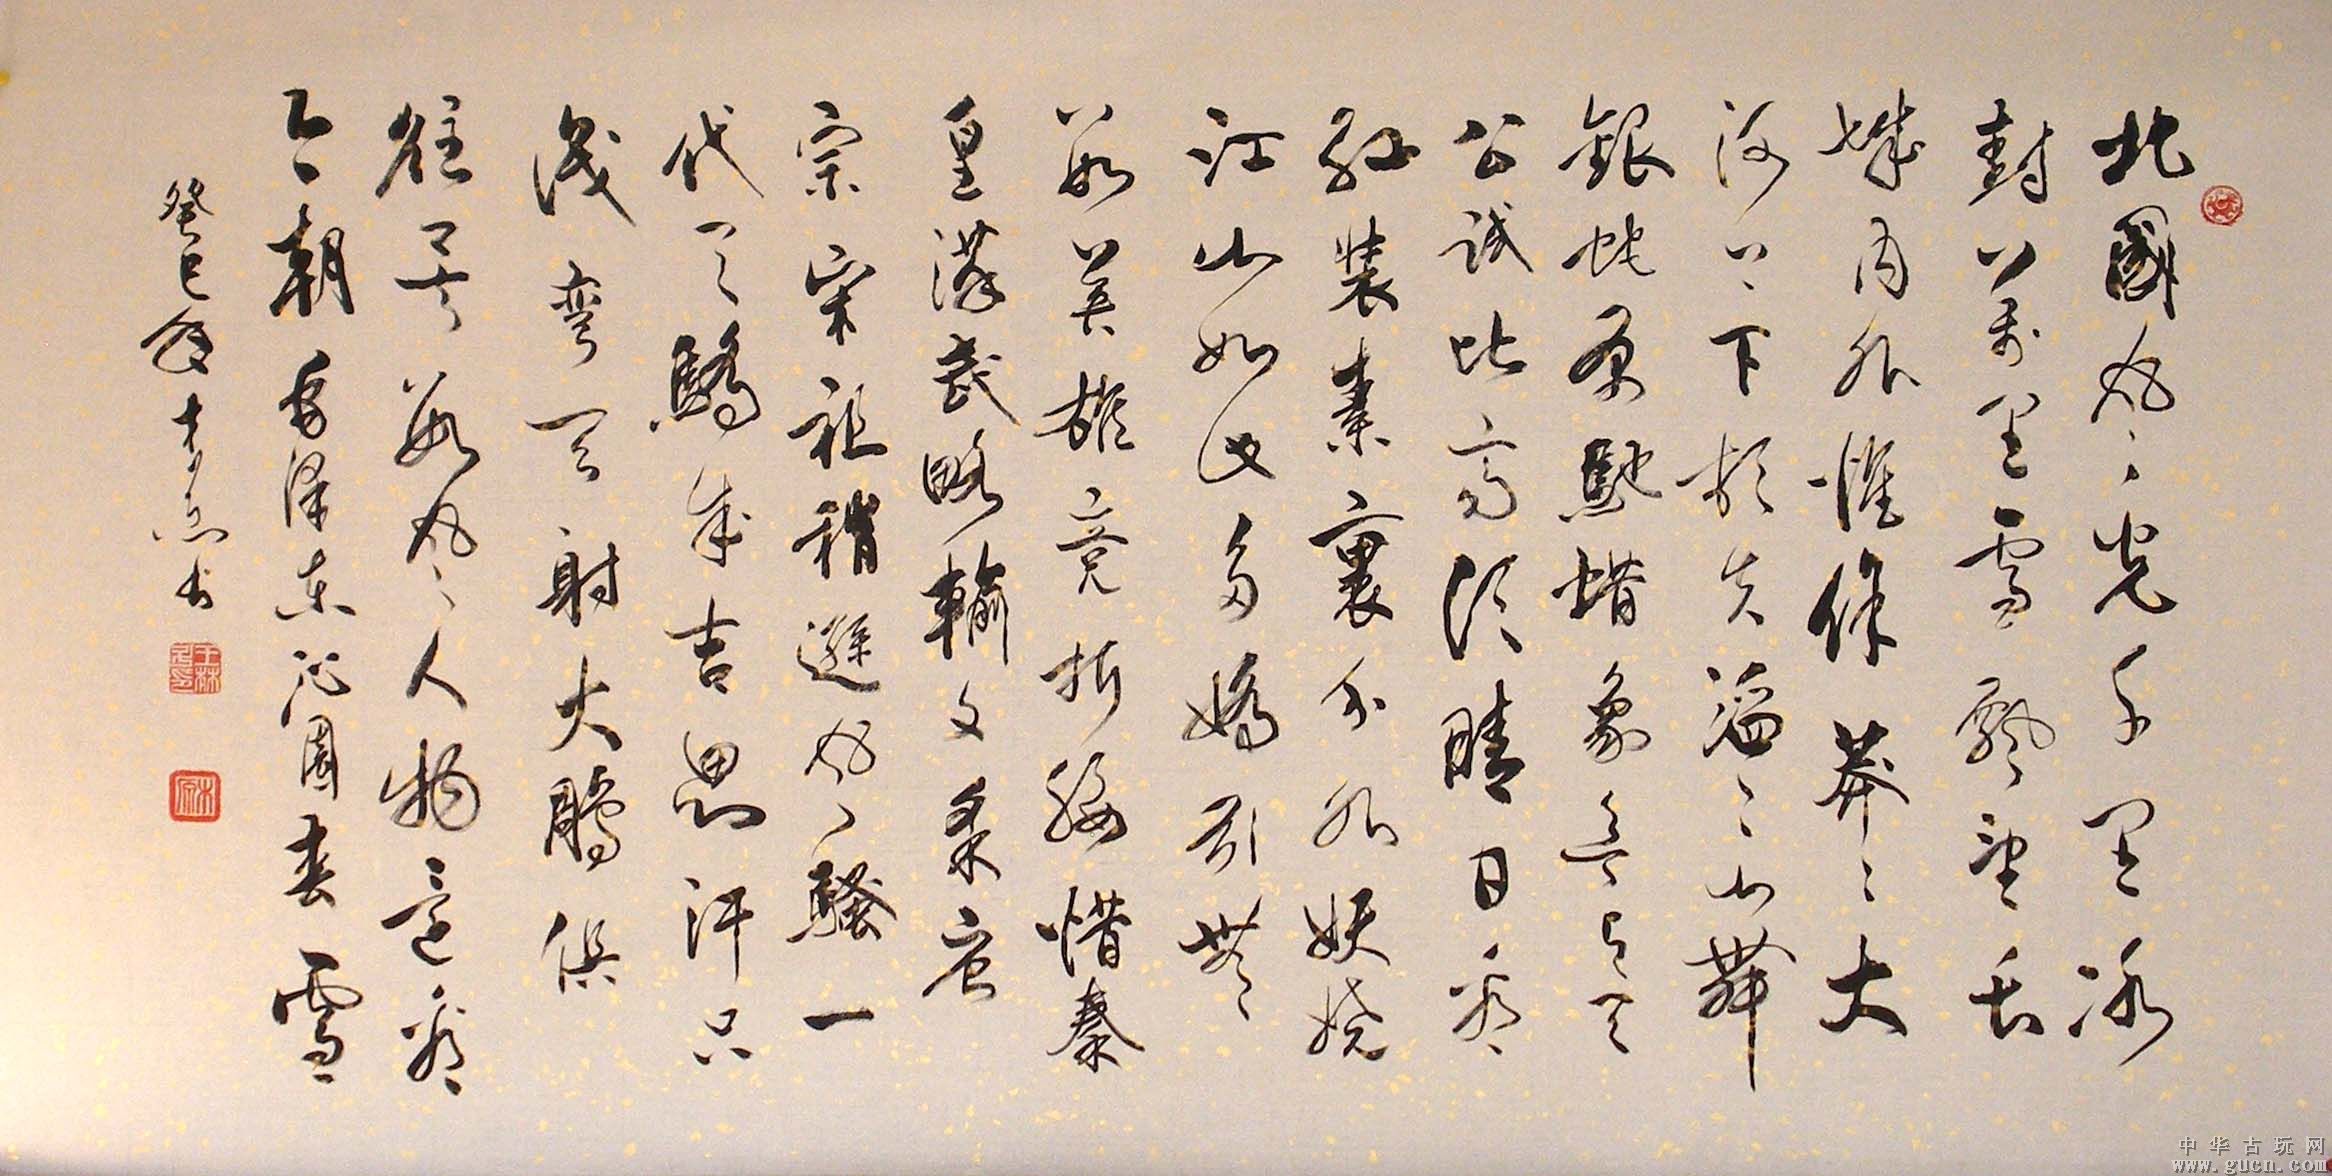 北國風光千里冰
封萬里雪飄望長
城内外惟餘莽々大
河上下頓失滔々山舞
銀蛇原馳蜡象欲與天
公試比高須晴日看
紅裝素裹分外妖嬈
江山如此多嬌引無
數英雄竞折腰惜秦
皇漢武略輸文采唐
宗宋祖稍遜風騷一
代天驕成吉思汗只
識弯弓射大鵰俱
往矣數風流人物還看
今朝毛澤東沁園春雪
癸巳书
中华古玩网
www.gucn.com